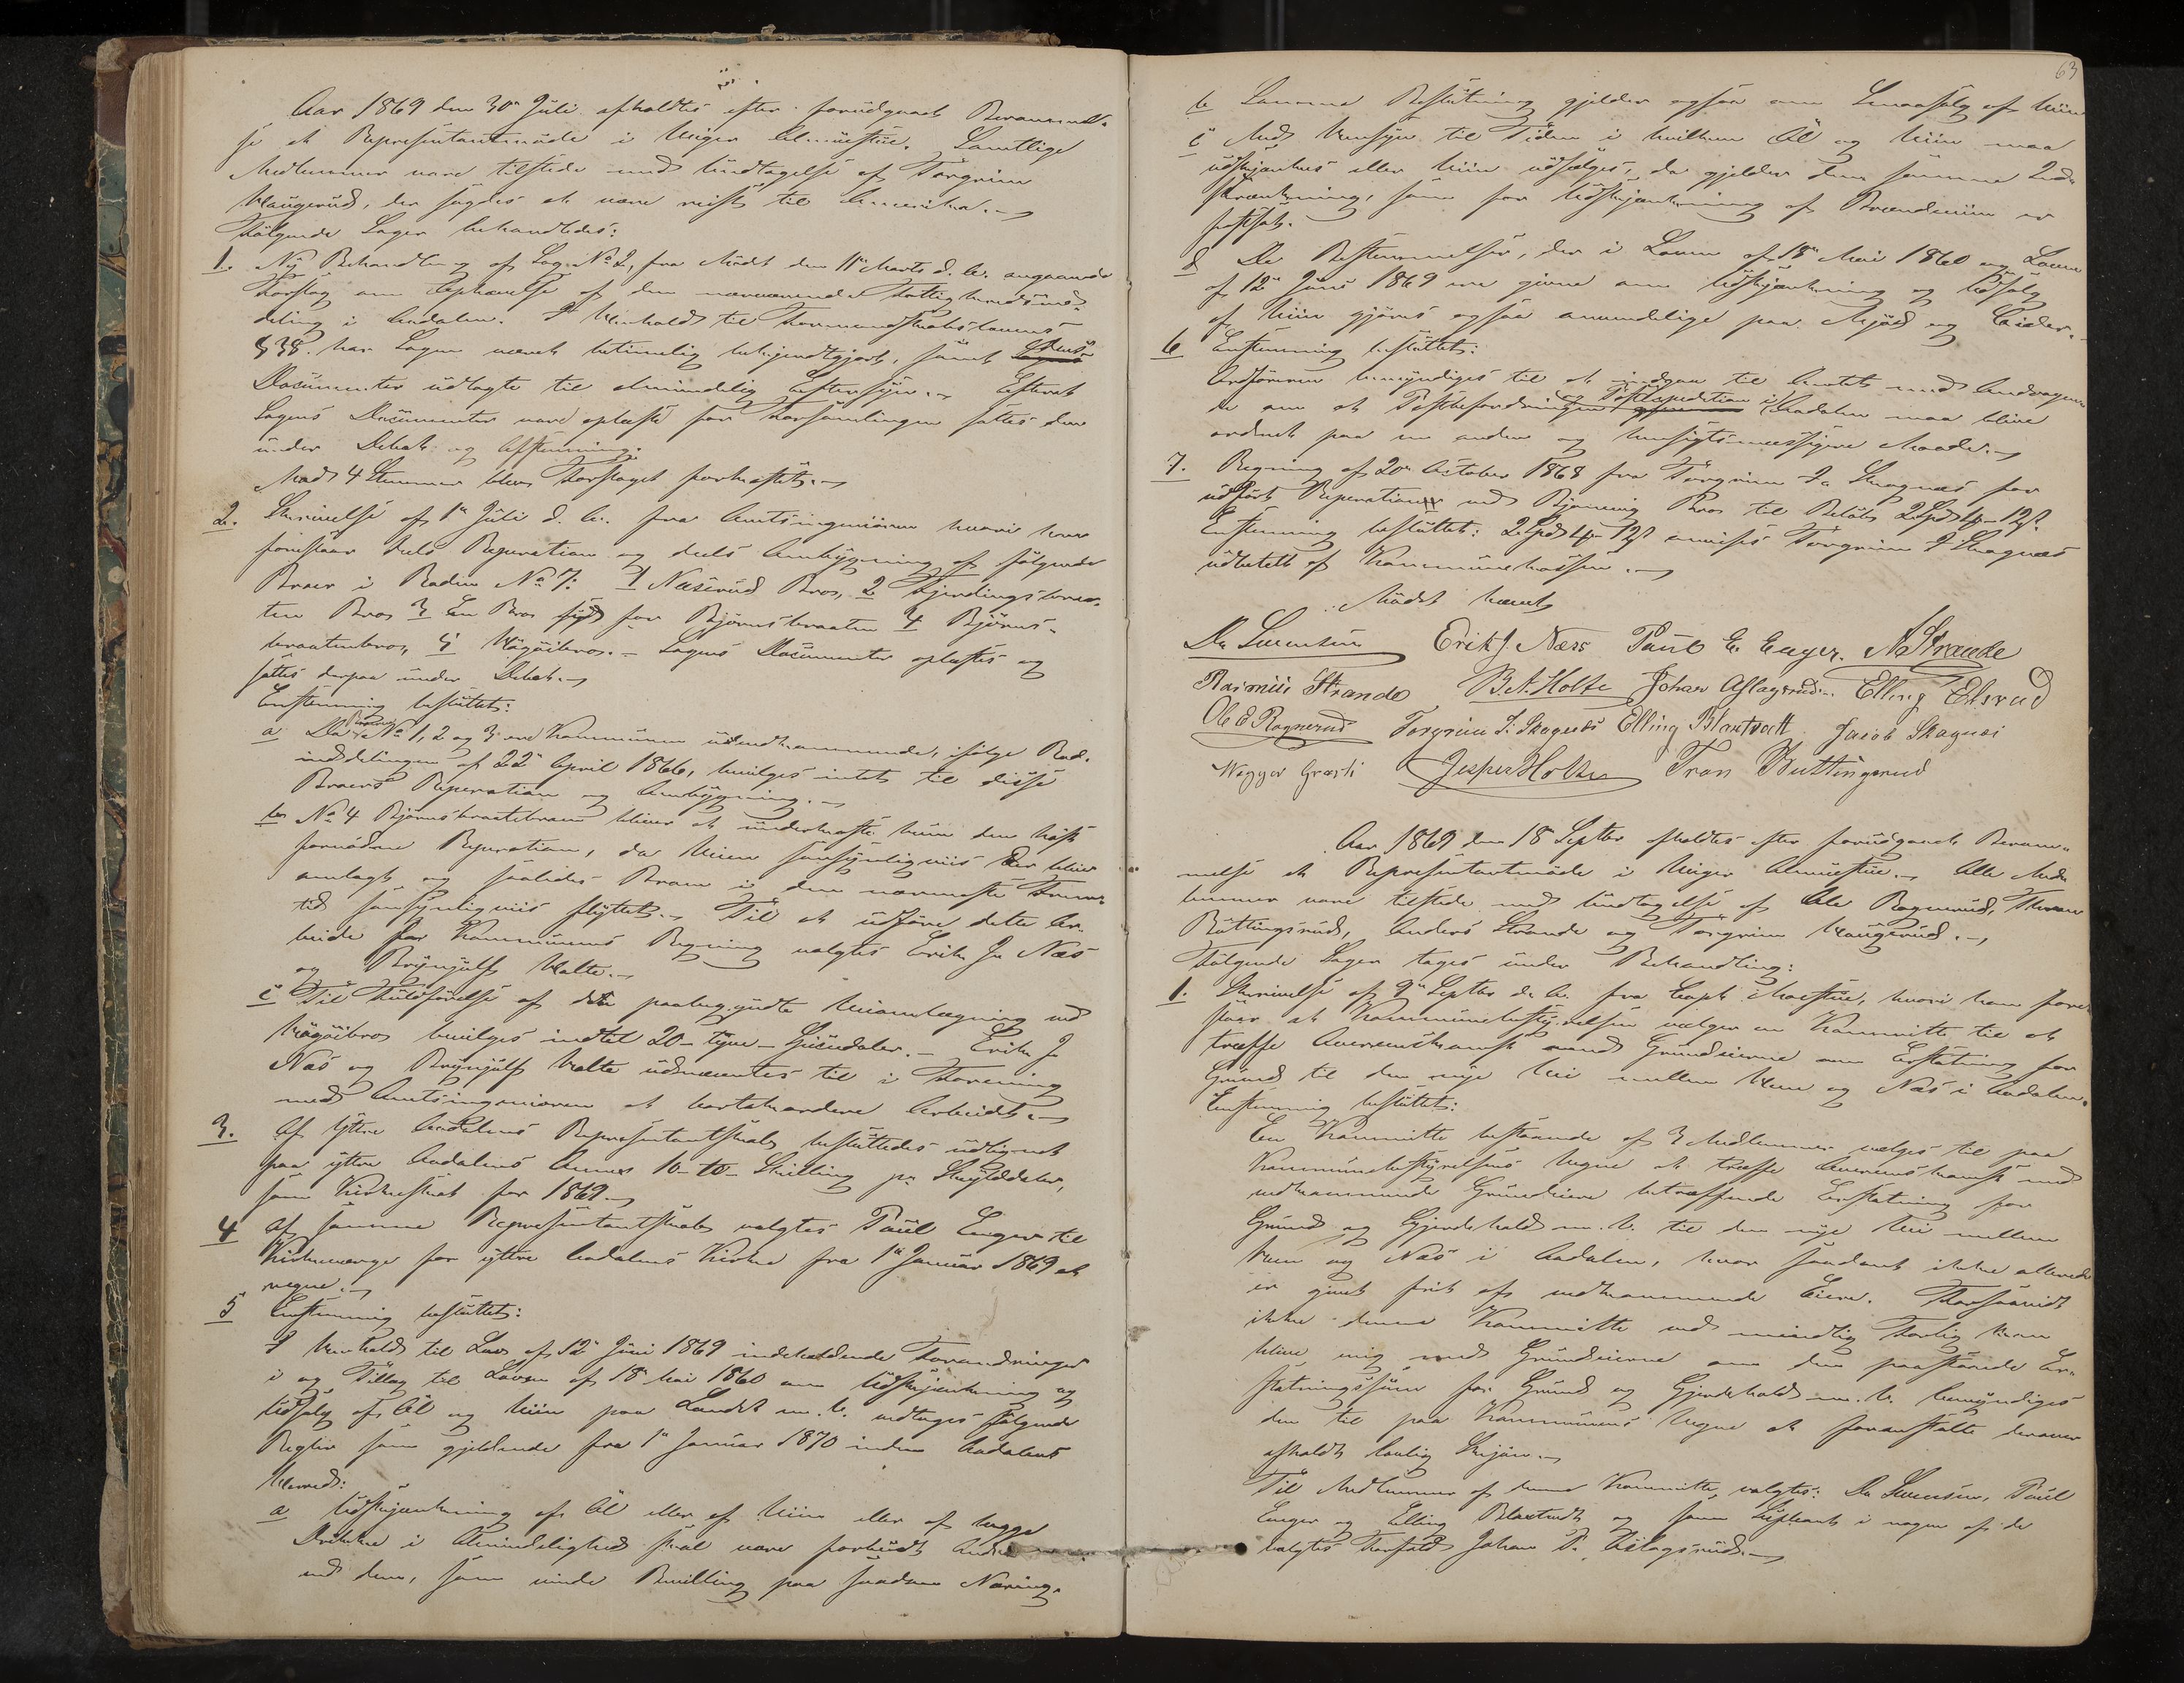 Aar 1869 den 30te Juli afholdtes efter forudgaaet Berammel-
se et Representantmöde i Veiger Almuestue. Samtlige
Medlemmer vare tilstede med Undtagelse af Torgrim
Haugerud, der sagdes at være reist til Amerika.
Fölgende Sager behandledes:
1. Ny Behandling af Sag No 2, fra Mödet den 11te Marts d. A. angaaende
Forslag om Ophævelse af den nuværende Fattigkredsind-
deling i Aadalen. I Henhold til Formandskabslovens
§ 38 har Sagen været betimelig bekjendtgjort, samt dens
Documenter udlagte til almindelig Eftersyn. Efterat
Sagens Documenter vare oplæste for Forsamlingen sattes den
under Debat og Afstemning.
Med 4 Stemmer blev Forslaget forkastet.
2. Skrivelse af 1te Juli d. A. fra Amtsingeniören hvori han
foreslaar dels Reperation og dels Ombygning af fölgende
Broer i Roden No 7: 1 Næserud Bro, 2 Fjerdingsbraa-
ten Bro 3 En Bro syd for Björnebraaten 4 Björne-
braatenbro, 5 Högöibro. Sagens Documenter oplæstes og
sattes derpaa under Debat.
Enstemmig besluttet:
a Da Broerne No 1, 2 og 3 ere Kommunen uvedkommende, ifölge Rod-
inddelingen af 22de April 1866, bevilges intet til disse
Broers Reperation og Ombygning.
b No 4 Björnebraatebroen bliver at underkaste kun den höist
fornödne Reperation, da Veien sansynligviis der bliver
omlagt og saaledes Broen i den nærmeste Frem-
tid sansynligviis flyttet. Til at udföre dette Ar-
beide for Kommunens Regning valgtes Erik J. Næs
og Brynjulf Holte.
c Til Fuldförelse af den paabegyndte Veiomlægning ved
Högöibro bevilges indtil 20 - tyve - Speciedaler. Erik J.
Næs og Brynjulf Holte udnævntes til i Forening
med Amtsingeniören at bortakordere Arbeidet.
3. Af Ytre Aadalens Representantskab besluttedes udlignet
paa ytre Aadalens Annex 10 - ti - Skilling pr Skylddaler,
som Kirkeskat for 1869.
4 Af samme Representantskab valgtes Paul Enger til
Kirkeværge for ytre Aadalens Kirke fra 1te Januar 1869 at
regne.
5 Enstemmig besluttet:
I Henhold til Lov af 12te Juni 1869 indeholdende Forandringer
i og Tillæg til Loven af 18te Mai 1860 om Udskjænkning og
Udsalg af Öl og Viin paa Landet m. V. vedtages fölgende
Regler som gjeldende fra 1te Januar 1870 inden Aadalens
Herred:
a Udskjænkning af Öl eller af Viin eller af begge
Drikke i Almindelighed skal være forbudt Andre
end dem, som vinde Bevilling paa saadan Næring.
63
b Samme Beslutning gjelder ogsaa om Smaasalg af Viin
c Med Hensyn til Tiden i hvilken Öl og Viin maa
udskjænkes eller Viin udsælges, da gjelder den samme Ind-
skrænkning, som for Udskjænkning af Brændeviin er
fastsat.
d De Bestemmelser, der i Loven af 18te Mai 1860 og Loven
af 12te Juni 1869 ere givne om Udskjænkning og Udsalg
af Viin gjöres ogsaa anvendelige paa Mjöd og Cider.
6 Enstemmig besluttet:
Ordföreren bemyndiges til at indgaa til Amtet med Andragen-
de om at Postbefordringen Postexpedition i Aadalen maa blive
ordnet paa en anden og hensigtsmæssigere Maade.
7. Regning af 20de October 1868 fra Torgrim J. Skagnæs for
udfört Reperation ved Bjöneng Bro til Belöb 2 Spd 4 - 12 s.
Enstemmig besluttet: 2 Spd 4 - 12 s anvises Torgrim J. Skagnæs
udbetalt af Kommunekassen.
Mödet hævet
Erik J. Næss Paul E. Enger. A Strande
Rasmus Strande B. A. Holte Johan Aslagsrud Elling Elsrud
Ole E Rognerud Torgrim J. Skagnæs Elling Blaxtvedt Jacob Skagnæs
Jesper Holte Tron Buttingsrud
Aar 1869 den 18 Septbr afholdtes efter forudgaaet Beram-
melse et Representantmöde i Veiger Almuestue. Alle Med-
lemmer vare tilstede med Undtagelse af Ole Rognerud, Thron
Buttingsrud, Anders Strande og Torgrim Haugerud.
Fölgende Sager toges under Behandling:
1. Skrivelse af 9de Septbr d. A. fra Capt. hvori han fore-
slaar at Kommunebestyrelsen vælger en Kommitte til at
træffe Overenskomst med Grundeierne om Erstatning for
Grund til den nye Vei mellem Hen og Næs i Aadalen.
Enstemmig besluttet:
En Kommitte bestaaende af 3 Medlemmer vælges til paa
Kommunebestyrelsens Vegne at træffe Overenskomst med
vedkommende Grundeiere betræffende Erstatning for
Grund og Gjerdehold m. V. til den nye Vei mellem
Hen og Næs i Aadalen, hvor saadant ikke allerede
er givet frit af vedkommende Eiere. Forsaavidt
ikke denne Kommitte ved mindelig Forlig kan
blive enig med Grundeierne om den paastaaede Er-
statningssum for Grund og Gjerdehold m. V. bemyndiges
den til paa Kommunens Vegne at foranstalte derover
afholdt lovlig Skjön.
Til Medlemmer af denne Kommitte valgtes: Paul
Enger og Elling Blaxtvedt og som Supleant i nogen af de
valgtes Forfald Johan P. Aslagsrud.